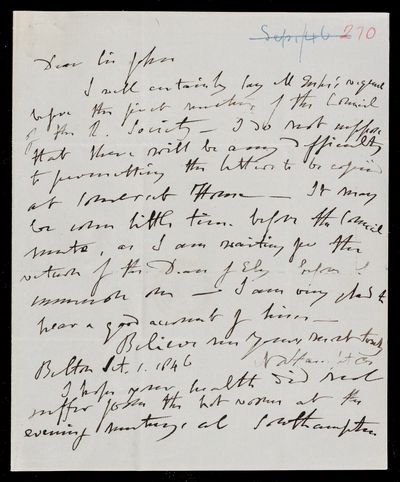 Sep 1/46 270
Dear Sir John
I will certainly lay Mr request
before the first meeting of the Council
of the R. Society — I do not suppose
that there will be any difficulty
to permitting the letters to be copied
at Somerset House — It may
be some little time before the Council
meets, as I am waiting for the
return of the Dean of Ely before I
summon one — I am very glad to
hear a good account of him —
Believe me yours most truly
Northampton
Belton Set. 1. 1846
I hope your health did not
suffer from the hot rooms at the
evening meetings at Southampton